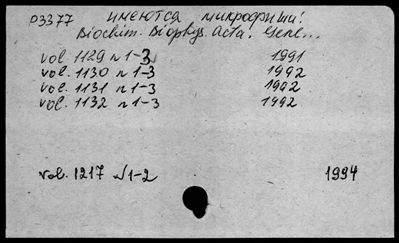 P3377 имеются микрофиши!
Biochim. Biophys. Acta. Gene...
vol 1129 n 1-3 1991
vol. 1130 n 1-3 1992
vol. 1131 n 1-3 1992
vol. 1132 n 1-3 1992
vol. 1217 N 1-2 1994